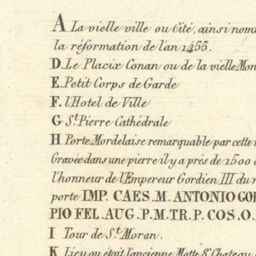 A La vielle ville ou Cité, ainsi nom
la réformation de l'an 1455.
D. Le Placix Conan ou de la vielle Mon
E. Petit Corps de Garde
F. l'Hotel de Ville
G St. Pierre Cathédrale
H Porte Mordelaise remarquable par cette i
Gravée dans une pierre il y a prés de 1500 a
l'honneur de l'Empereur Gordien III du n
porte IMP. CAES. M. ANTONIO GOR
PIO FEL. AUG. P. M. TR. P. COS. O.
I Tour de St. Moran.
K Lieu ou étoit l'ancienne Motte & Chateau